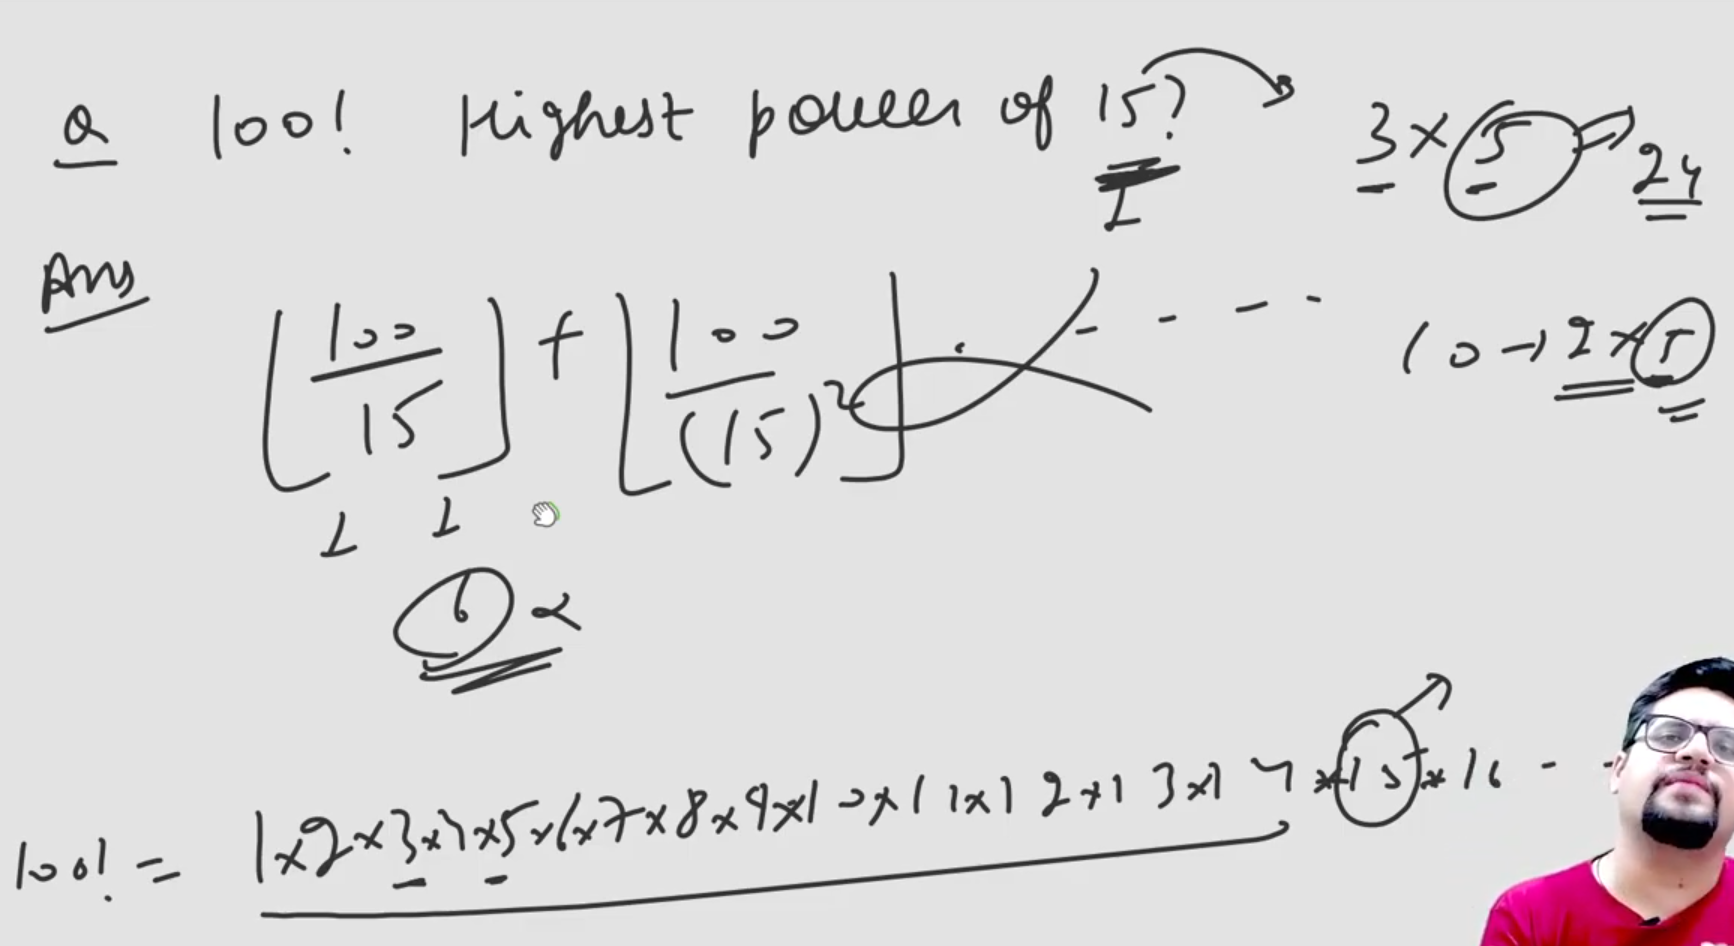 Q 100! Highest power of 15? → 3 × 5 → 24
Ans [100/15] + [100/(15)²] - - - -
10 → 2 × 5
6
100! = 1×2×3×4×5×6×7×8×9×10×11×12×13×14×15×16 - -